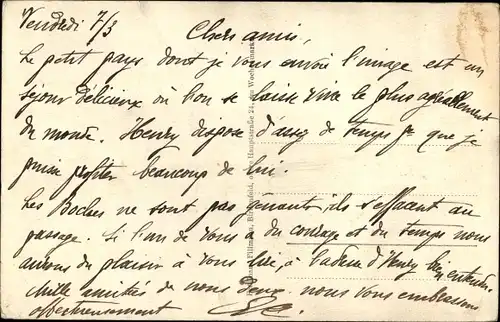 Vendredi 7/3
Chers amis,
Le petit pays dont je vous envoie l'image est un
séjour délicieux où bon se laisse vivre le plus agréablement
du monde. Henry dispose d'assez de temps pr que je
puisse profiter beaucoup de lui.
Les Boches ne sont pas gênants, ils s'effacent au
passage. Si l'un de vous a du courage et du temps nous
aurons du plaisir à vous lire, à l'adresse d'Henry bien entendu.
Mille amitiés de nous deux. nous vous embrassons
affectueusement
Hauptstraße 24, Wochenmarkt